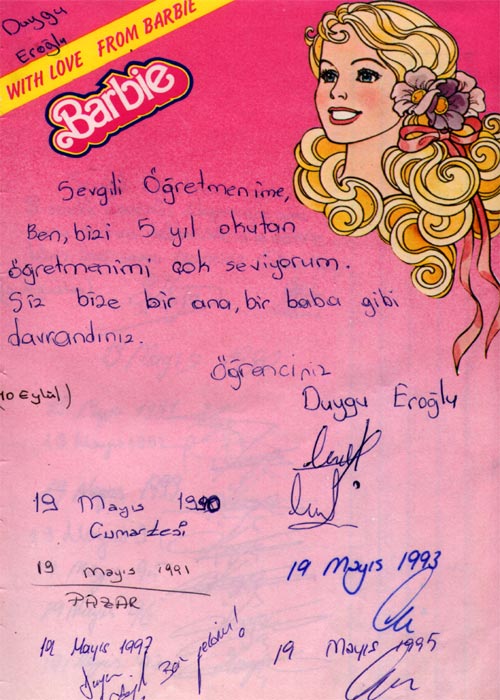 Duygu
Eroğlu
WITH LOVE FROM BARBIE
Barbie
Sevgili Öğretmenime,
Ben, bizi 5 yıl okutan
öğretmenimi çok seviyorum.
Siz bize bir ana, bir baba gibi
davrandınız.
Öğrenciniz
(10 Eylül)
Duygu Eroğlu
19 Mayıs 1990
Cumartesi
19 Mayıs 1991
PAZAR
19 Mayıs 1993
19 Mayıs 1992
Ben geldim!
19 Mayıs 1995